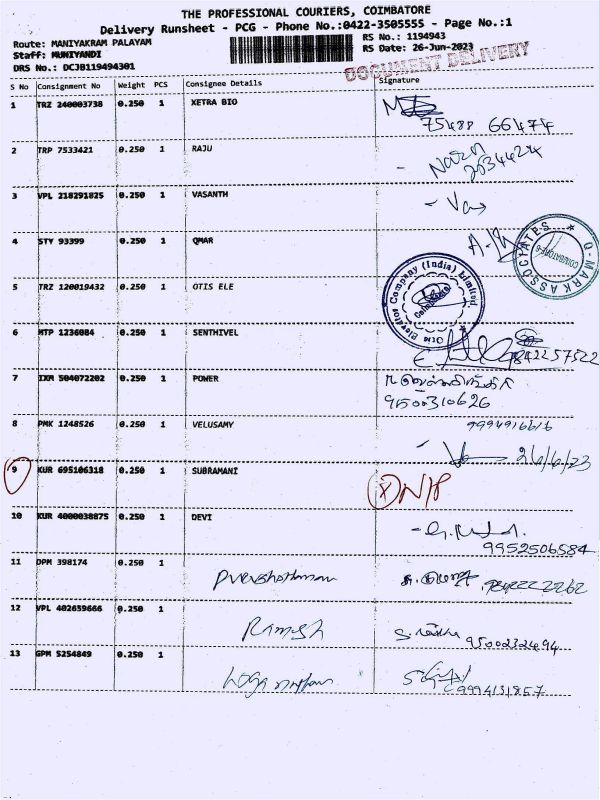 THE PROFESSIONAL COURIERS, COIMBATORE
Delivery Runsheet - PCG - Phone No.:0422-3505555 - Page No.:1
Route: MANIYAKRAM PALAYAM
RS No.: 1194943
Staff: MUNIYANDI
RS Date: 26-Jun-2023
DRS No.: DCJB119494301
DOCUMENT DELIVERY
S No Consignment No Weight PCS Consignee Details Signature
1 TRZ 240003738 0.250 1 XETRA BIO
75488 66474
2 TRP 7533421 0.250 1 RAJU
3 VPL 218291825 0.250 1 VASANTH
4 STY 93399 0.250 1 QMAR
Q-MARK ASSOCIATES
COIMBATORE-6
5 TRZ 120019432 0.250 1 OTIS ELE
Otis Elevator Company (India) Limited
Coimbatore
6 MTP 1236084 0.250 1 SENTHIVEL
9842257522
7 IXM 504072202 0.250 1 POWER
9500310626
8 PMK 1248526 0.250 1 VELUSAMY
9994916616
26/6/23
9 KUR 695106318 0.250 1 SUBRAMANI
10 KUR 4000038875 0.250 1 DEVI
9952506584
11 DPM 398174 0.250 1 Purushothaman
12 VPL 402659666 0.250 1 Ramesh
9500232494
13 GPM 5254849 0.250 1
9994131857